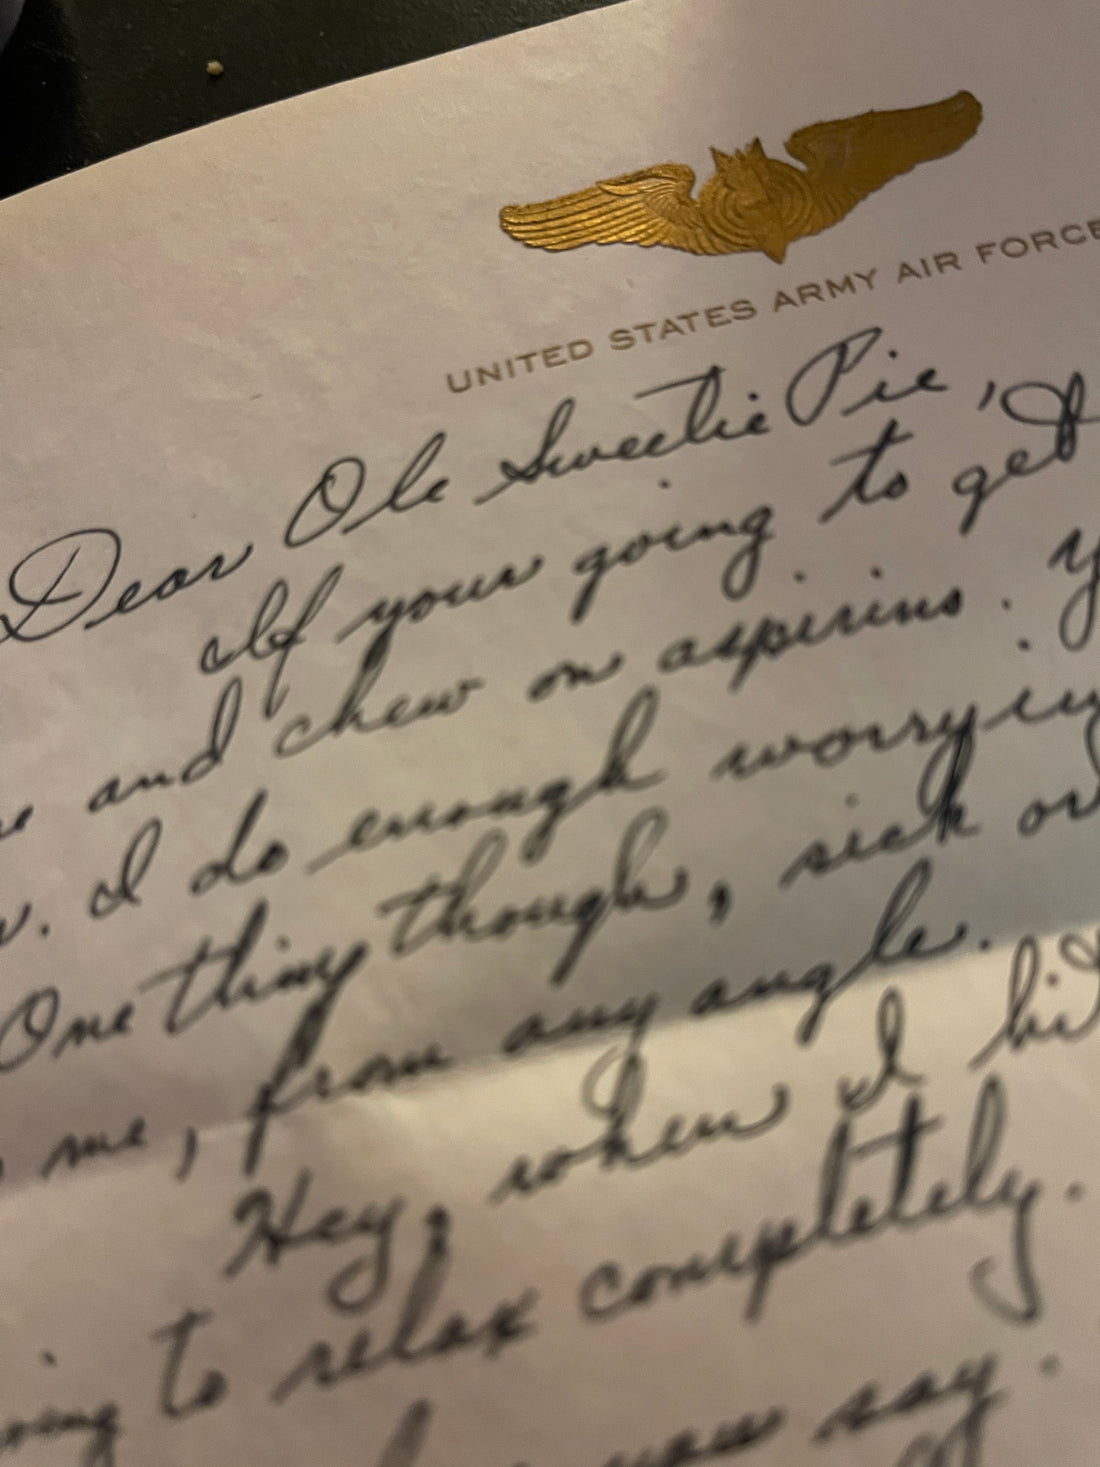 UNITED STATES ARMY AIR FORCE
Dear Ole Sweetie Pie,
If your going to get
and chew on aspirins.
I do enough worryin
One thing though, sick or
me, from any angle.
Hey, when I hit
to relax completely.
you say.